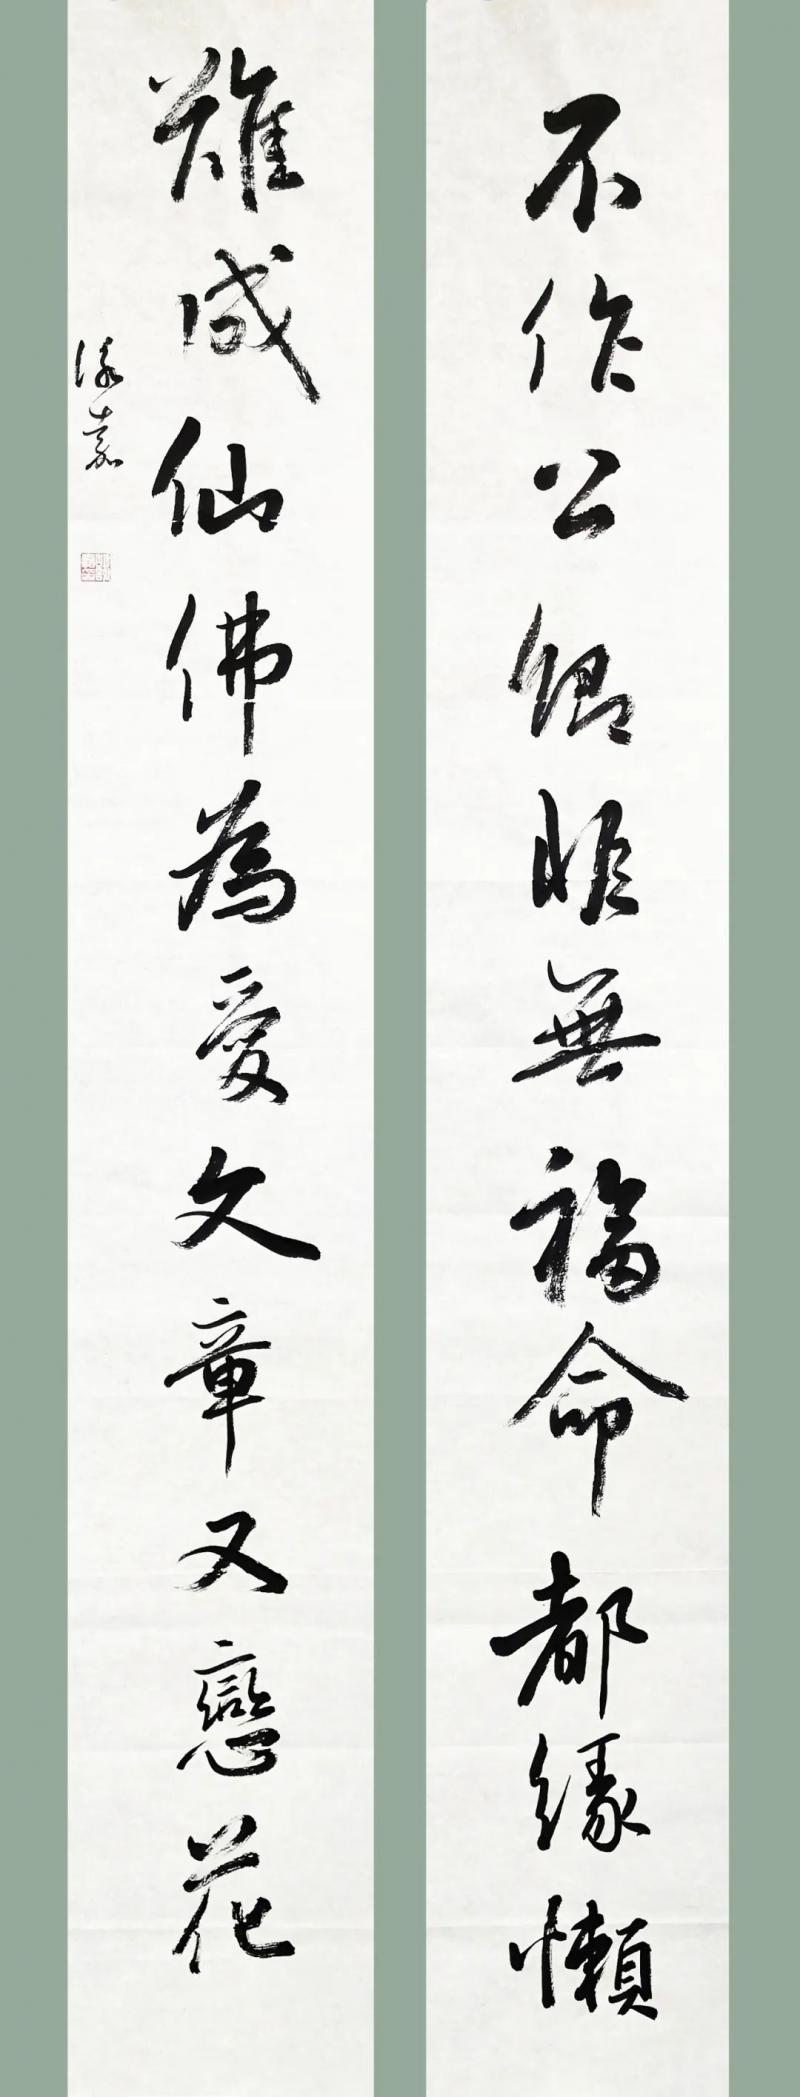 不作公卿非無福命都緣懶
難成仙佛為愛文章又戀花